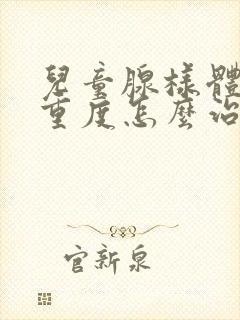 兒童腺樣體
重度怎麼治
官新泉